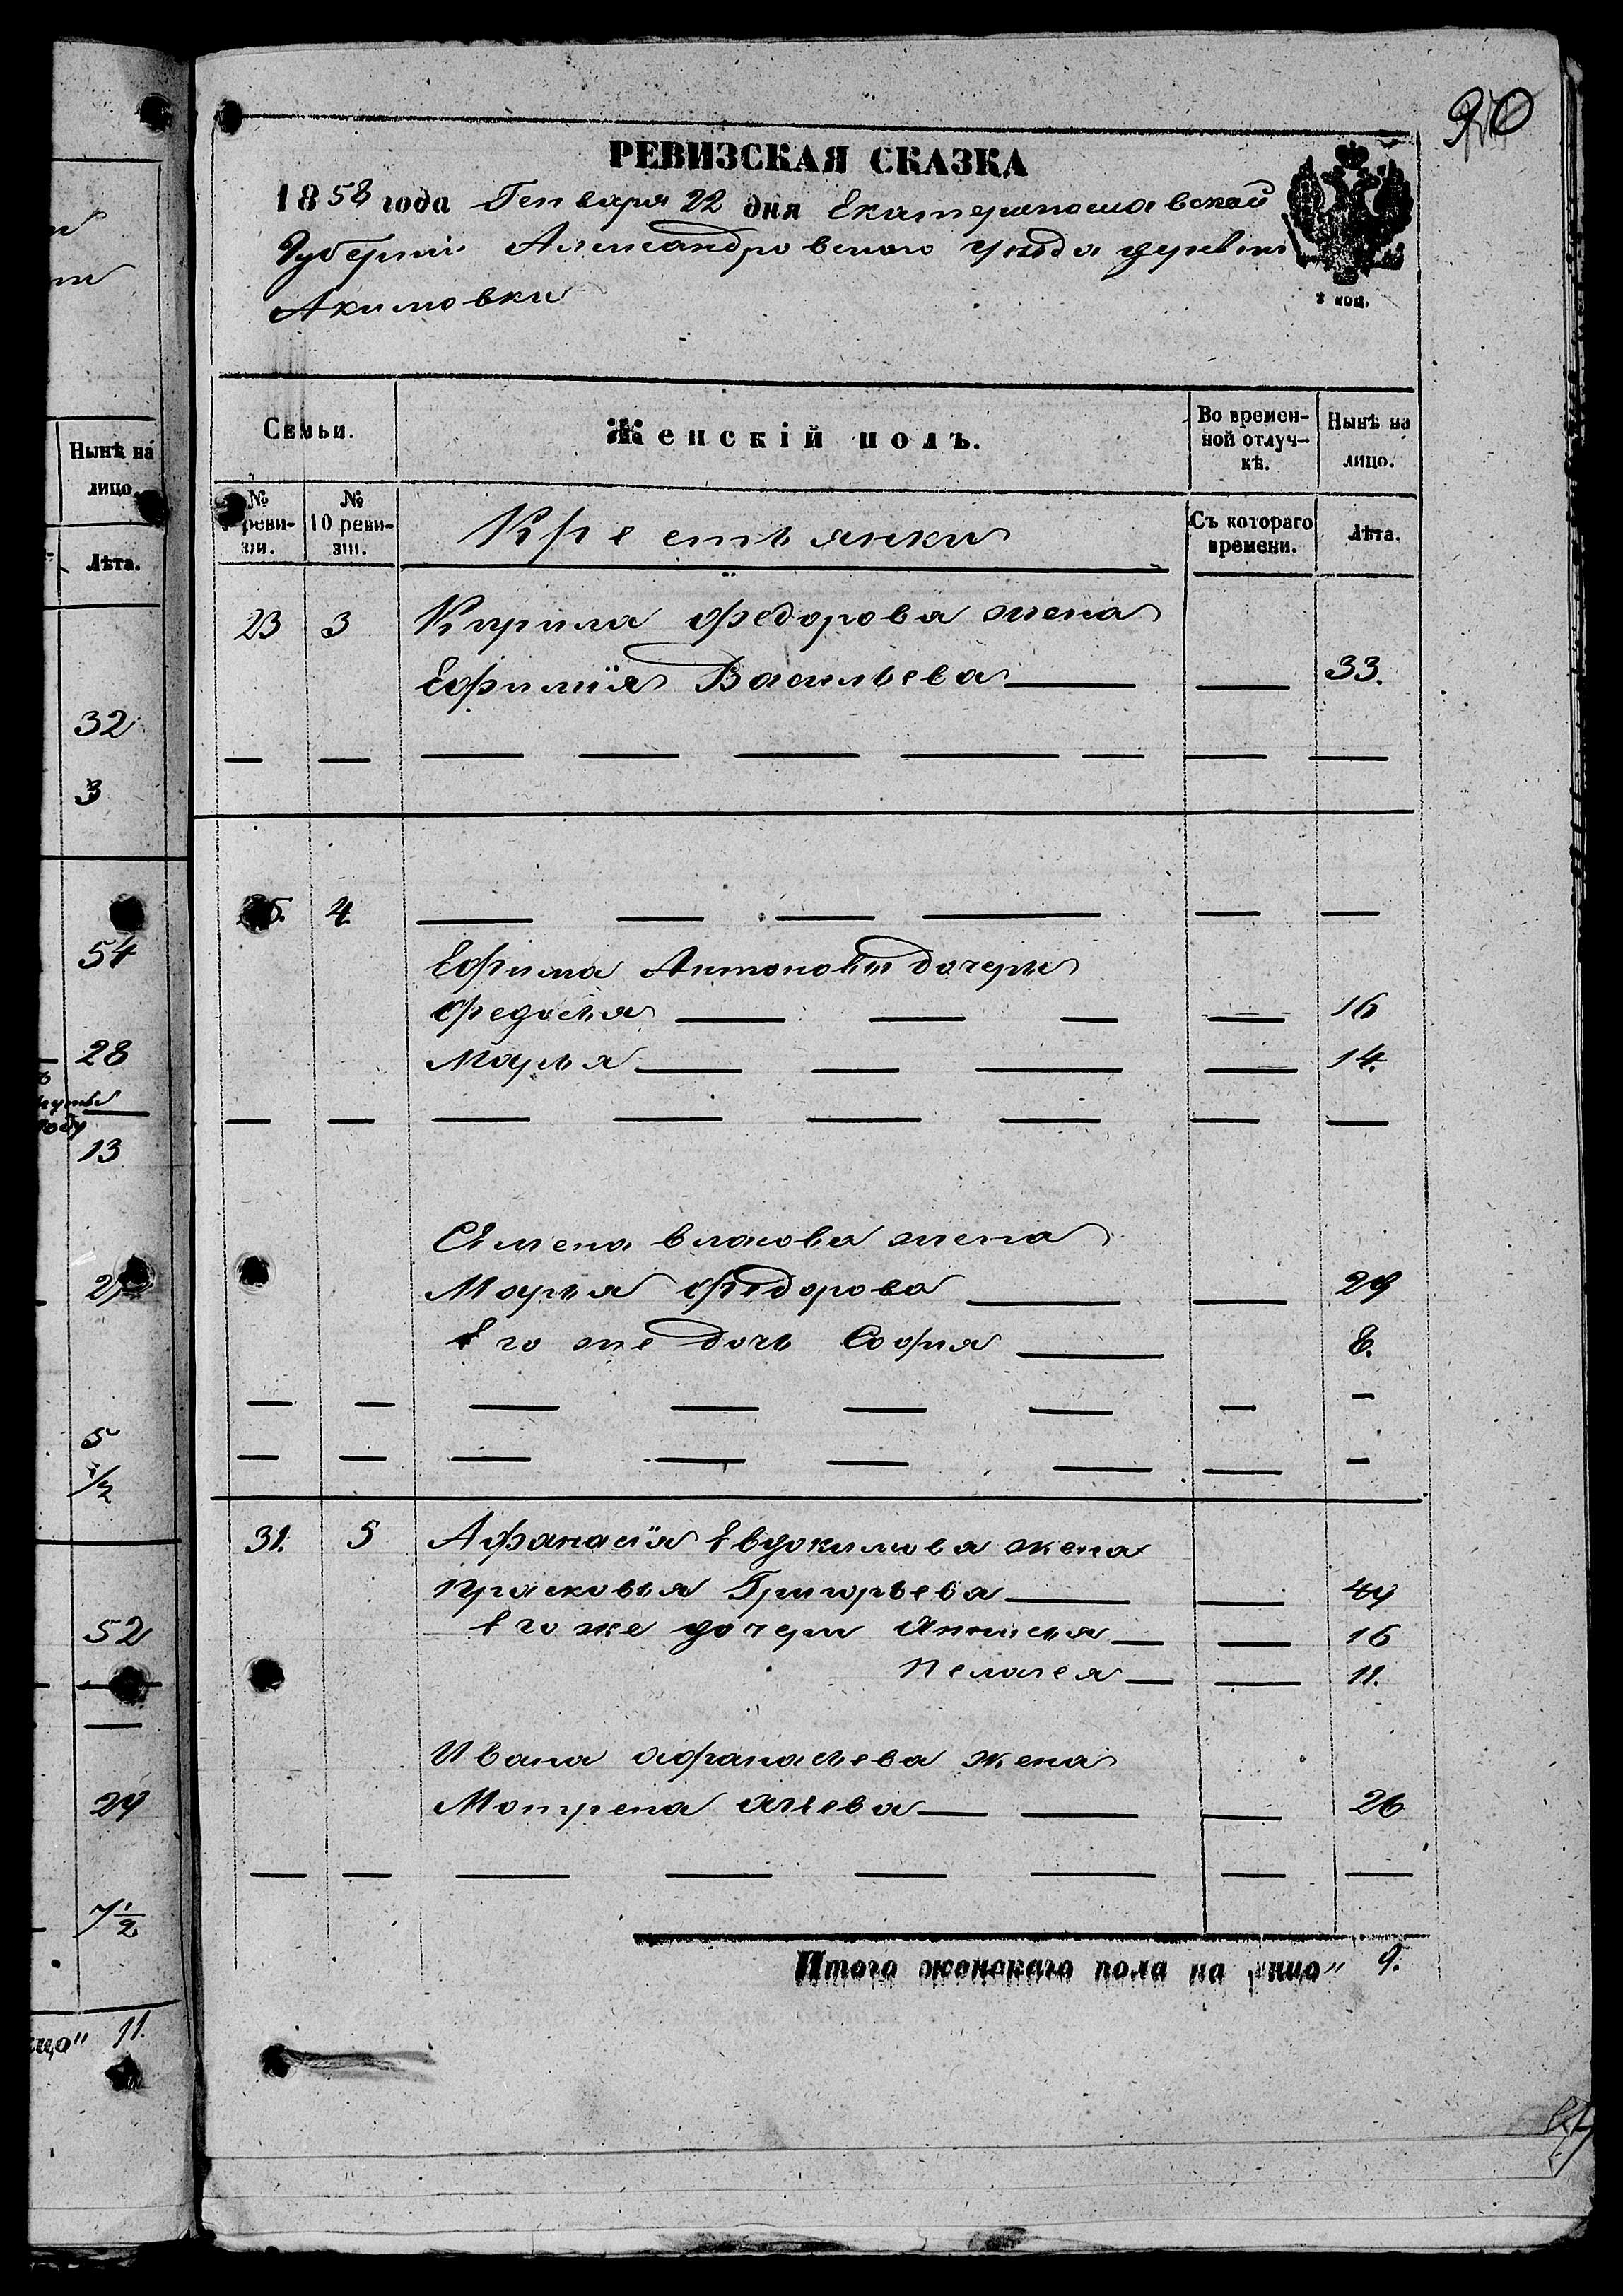 20
РЕВИЗСКАЯ СКАЗКА
1858 года Генваря 22 дня Екатеринославской
Губернiи Александровского уезда деревни
Акимовки
2 коп.
Семьи.
Женскій полъ.
Во времен-
ной отлуч-
кѣ.
Нынѣ на
лицо.
№
реви-
зіи.
№
10 реви-
зіи.
Крестьянки
Съ котораго
времени.
Лѣта.
23 3 Кирила Федорова жена
Ефимiя Васильева 33.
4
Ефима Антонова дочери
Федосья 16
Марья 14.
Семена Власова жена
Марья Федорова 29
Его же дочь Софья 8.
31. 5 Афанасiя Евдокимова жена
Прасковья Григорьева 49
Его же дочери Анисья 16
Пелагея 11.
Ивана Афанасьева жена
Мотрена 26
Итого женскаго пола на лицо" 9.
Нынѣ на
лицо.
Лѣта.
32
3
54
28
году
13
5
1/2
52
29
7 1/2
лицо" 11.